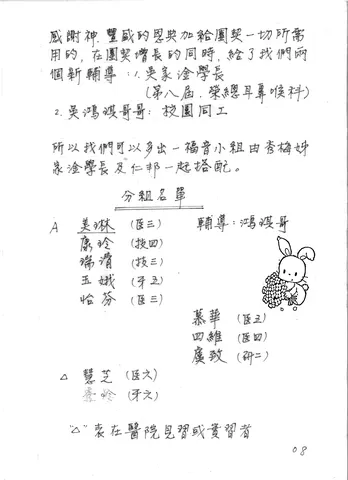 感謝神.豐盛的恩典加給團契一切所需
用的，在團契增長的同時，給了我們兩
個新輔導：1.吳家淦學長
(第八屆.榮總耳鼻喉科)
2.吳鴻漢哥哥：校園同工
所以我們可以多出一福音小組由秀梅姊
家淦學長及仁邦一起搭配。
分組名單
A 美琳 (医三) 輔導：鴻漢哥
康玲 (技四)
瑞 (技三)
玉娥 (牙五)
怡芬 (医三)
慕華 (医五)
四維 (医四)
廣致 (研二)
△ 慧芝 (医六)
(牙六)
"△"表在醫院見習或實習者
08